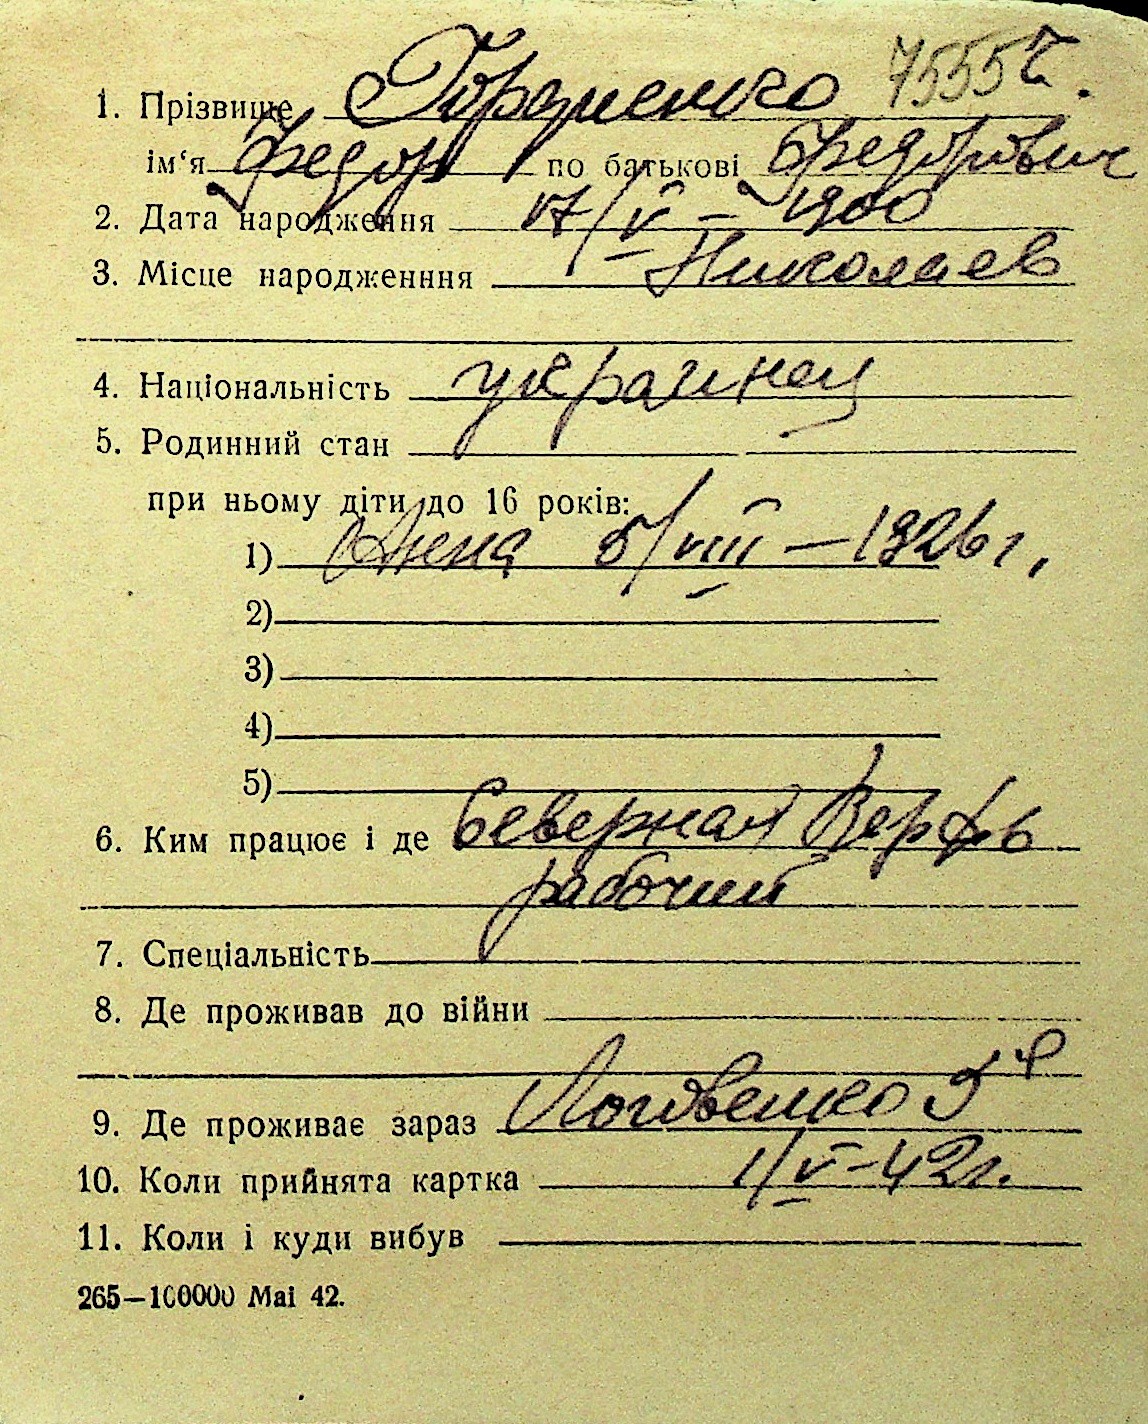 75557.
1. Прізвище
ім‘я Федор по батькові Федорович
2. Дата народження 17/V – 1900
3. Місце народженння Николаев
4. Національність украинец
5. Родинний стан
при ньому діти до 16 років:
1) Анна 5/VIII – 1926 г.
2)
3)
4)
5)
6. Ким працює і де Северная Верфь
рабочий
7. Спеціальність
8. Де проживав до війни
9. Де проживає зараз
10. Коли прийнята картка 1/V – 42 г.
11. Коли і куди вибув
265—100000 Mai 42.